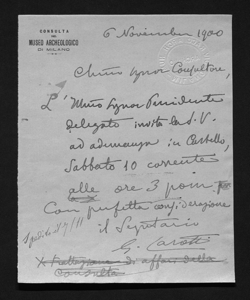 CONSULTA
DEL
MUSEO ARCHEOLOGICO
DI MILANO
6 Novembre 1900
Chimo Signor Consultore,
L'Illmo Signor Presidente
delegato invita la S.V.
ad adunanza in Castello,
Sabbato 10 corrente
alle ore 3 pom.
Con perfetta considerazione
il Segretario
G. Carotti
Spedito il 7/11
trattazione di affari della
Consulta